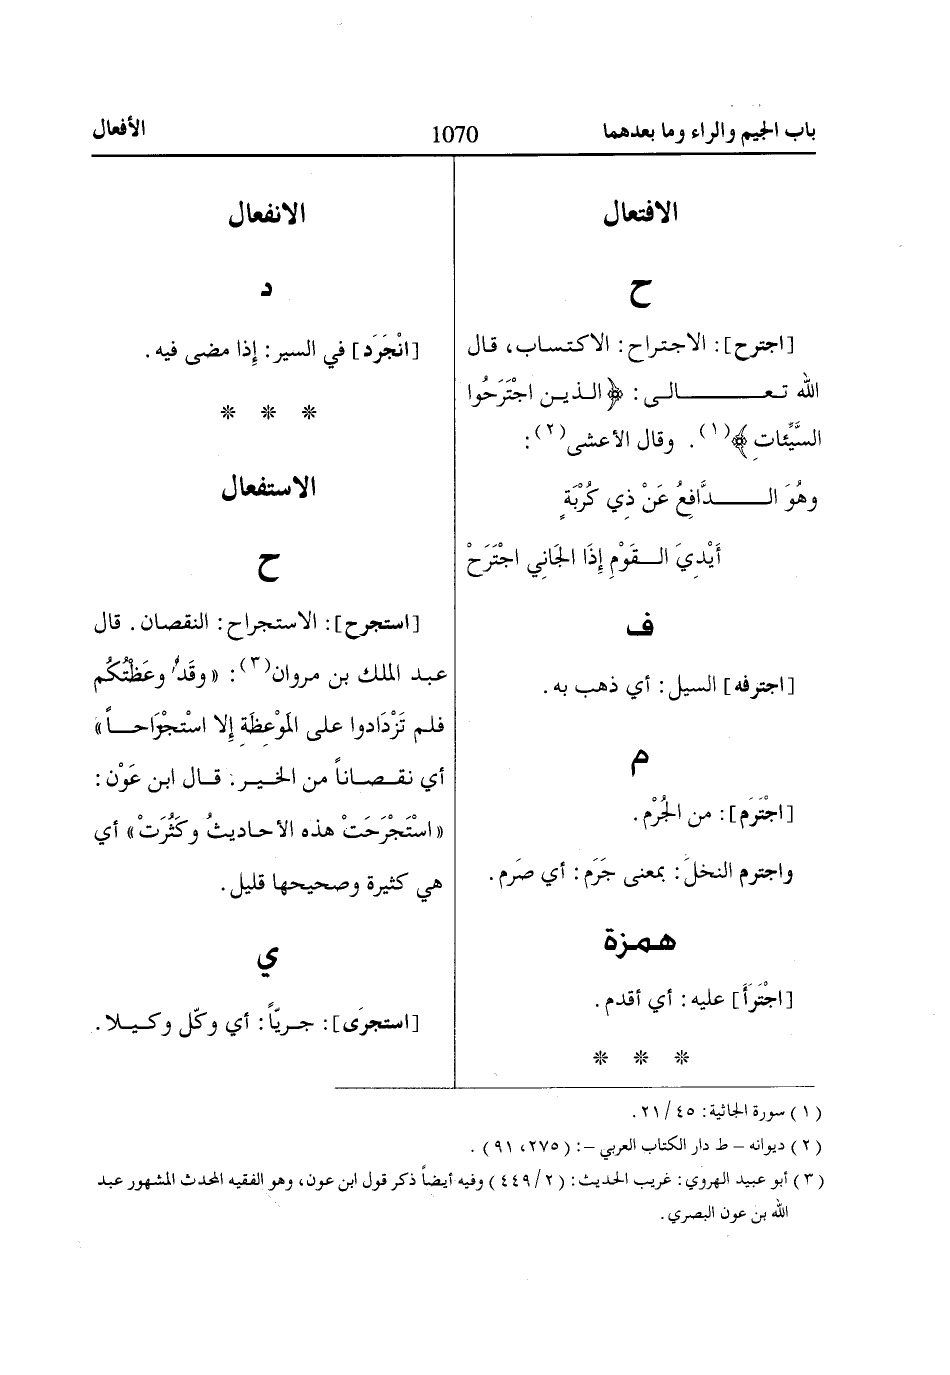 باب الجيم والراء وما بعدهما 1070 الأفعال
الافتعال
ح
[اجترح]: الاجتراح: الاكتساب، قال
الله تعـــالى: ﴿الذين اجْتَرَحُوا
السَّيِّئاتِ﴾(١). وقال الأعشى(٢):
وهُوَ الـــدَّافِعُ عَنْ ذِي كُرْبَةٍ
أَيْدِيَ القَوْمِ إِذَا الجَاني اجْتَرَحْ
ف
[اجترفه] السيل: أي ذهب به.
م
[اجْتَرَم]: من الجُرْم.
واجترم النخلَ: بمعنى جَرَم: أي صرَم.
همزة
[اجْتَرَأَ] عليه: أي أقدم.
* * *
الانفعال
د
[انْجَرَد] في السير: إِذا مضى فيه.
* * *
الاستفعال
ح
[استجرح]: الاستجراح: النقصان. قال
عبد الملك بن مروان(٣): «وقَدْ وعَظْتُكُم
فلم تَزْدَادوا على المَوْعِظَةِ إِلا اسْتِجْرَاحاً»
أي نقصاناً من الخير. قال ابن عَوْن:
«اسْتَجْرَحَتْ هذه الأحاديثُ وكَثُرَتْ» أي
هي كثيرة وصحيحها قليل.
ي
[استجرَى]: جريّاً: أي وكّل وكيلا.
(١) سورة الجاثية: ٤٥/ ٢١.
(٢) ديوانه – ط دار الكتاب العربي –: (٢٧٥، ٩١).
(٣) أبو عبيد الهروي: غريب الحديث: (٢/ ٤٤٩) وفيه أيضاً ذكر قول ابن عون، وهو الفقيه المحدث المشهور عبد
الله بن عون البصري.